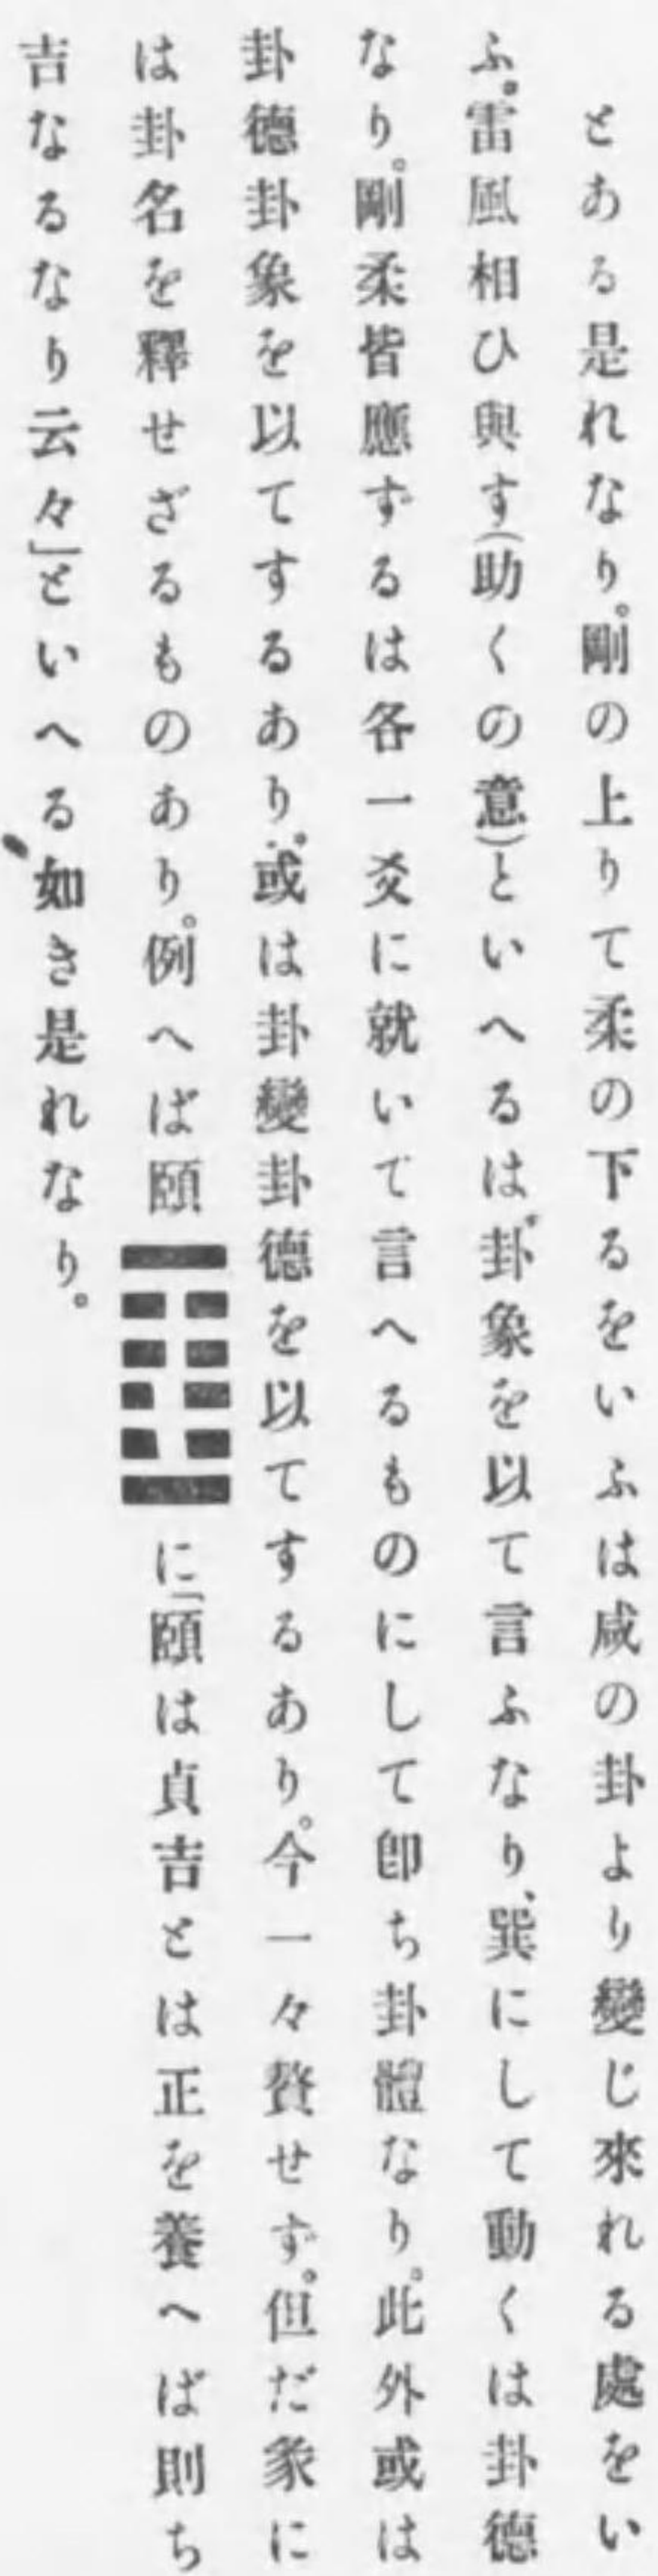 とある是れなり。剛の上りて柔の下るをいふは咸の卦より變じ來れる處をい
ふ。雷風相ひ與す(助くの意)といへるは卦象を以て言ふなり、巽にして動くは卦德
なり。剛柔皆應ずるは各一爻に就いて言へるものにして卽ち卦體なり。此外或は
卦德卦象を以てするあり。或は卦變卦德を以てするあり。今一々贅せず。但だ彖に
は卦名を釋せざるものあり。例へば頤䷚に「頤は貞吉とは正を養へば則ち
吉なるなり云々」といへる如き是れなり。